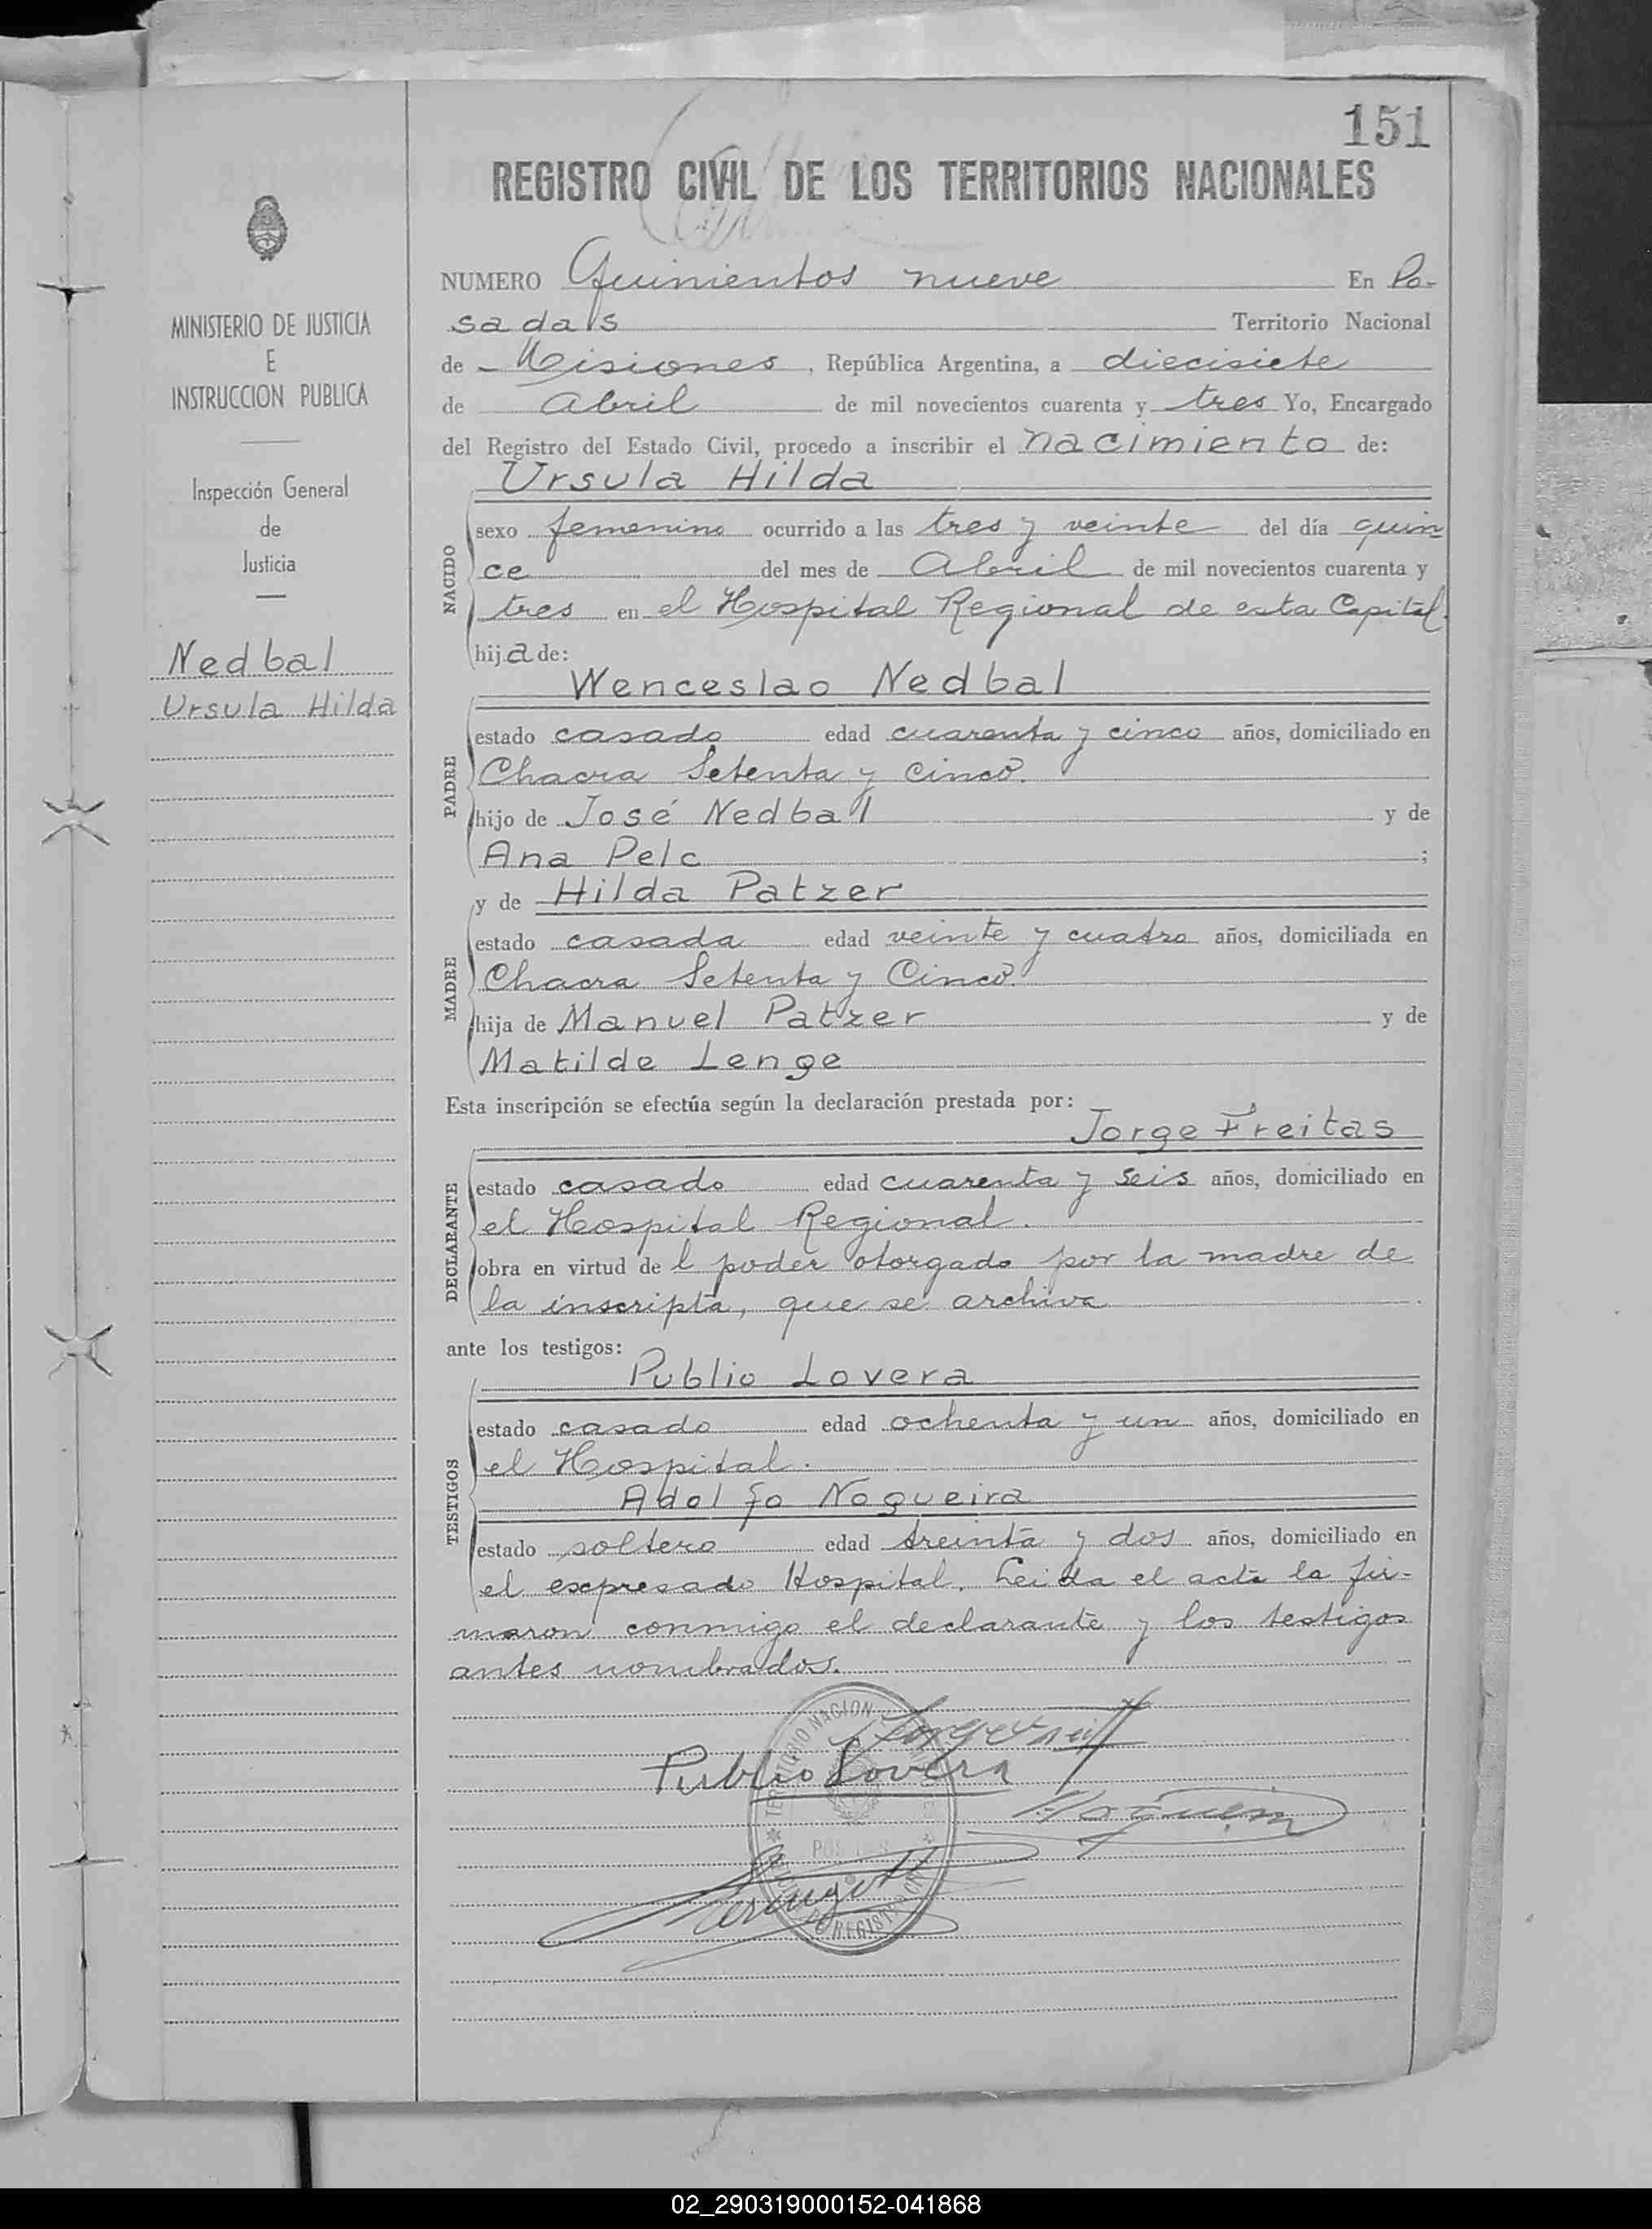 151
REGISTRO CIVIL DE LOS TERRITORIOS NACIONALES
MINISTERIO DE JUSTICIA
E
INSTRUCCION PUBLICA
Inspección General
de
Justicia
Nedbal
Ursula Hilda
NUMERO Quinientos nueve En Po-
sadas Territorio Nacional
de Misiones, República Argentina, a diecisiete
de Abril de mil novecientos cuarenta y tres Yo, Encargado
del Registro del Estado Civil, procedo a inscribir el nacimiento de:
Ursula Hilda
NACIDO
sexo femenino ocurrido a las tres y veinte del día quin-
ce del mes de Abril de mil novecientos cuarenta y
tres en el Hospital Regional de esta Capital.
hija de:
Wenceslao Nedbal
PADRE
estado casado edad cuarenta y cinco años, domiciliado en
Chacra Setenta y Cinco.
hijo de José Nedbal y de
Ana Pelc ;
y de Hilda Patzer
MADRE
estado casada edad veinte y cuatro años, domiciliada en
Chacra Setenta y Cinco.
hija de Manuel Patzer y de
Matilde Lenge
Esta inscripción se efectúa según la declaración prestada por:
Jorge Freitas
DECLARANTE
estado casado edad cuarenta y seis años, domiciliado en
el Hospital Regional.
obra en virtud del poder otorgado por la madre de
la inscripta, que se archiva
ante los testigos:
Publio Lovera
TESTIGOS
estado casado edad ochenta y un años, domiciliado en
el Hospital.
Adolfo Nogueira
estado soltero edad treinta y dos años, domiciliado en
el expresado Hospital. Leida el acta la fir-
maron conmigo el declarante y los testigos
antes nombrados.
Publio Lovera
02_290319000152-041868